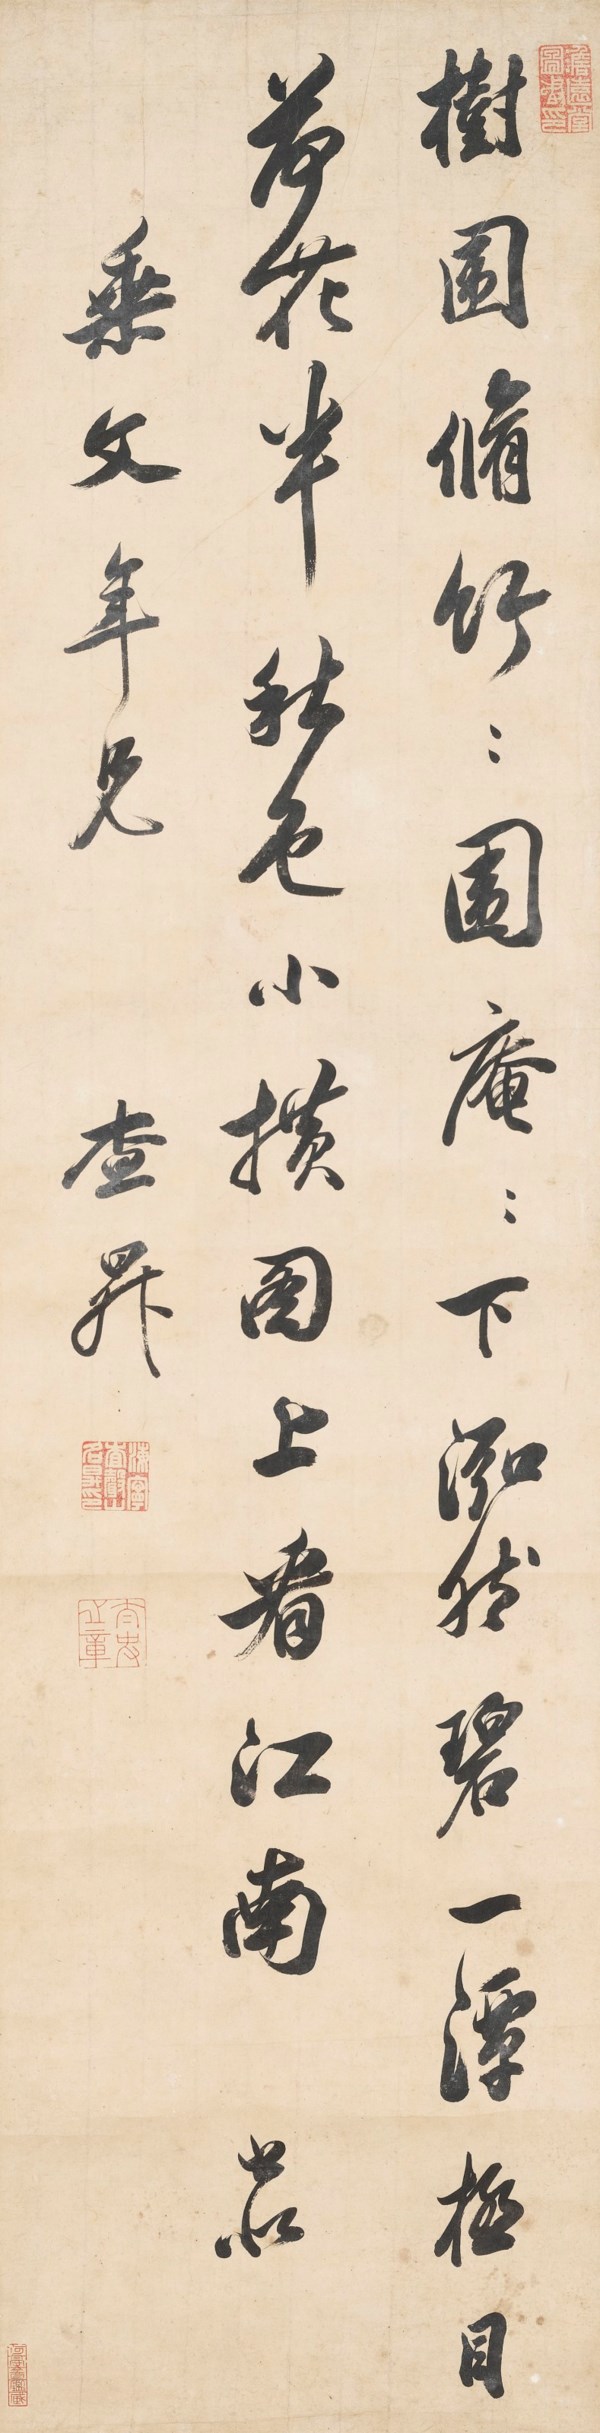 樹圍脩竹〻圍庵〻下泓然碧一潭極目
荷花半秋色小橫图上看江南 书似
乘文年兄 查昇